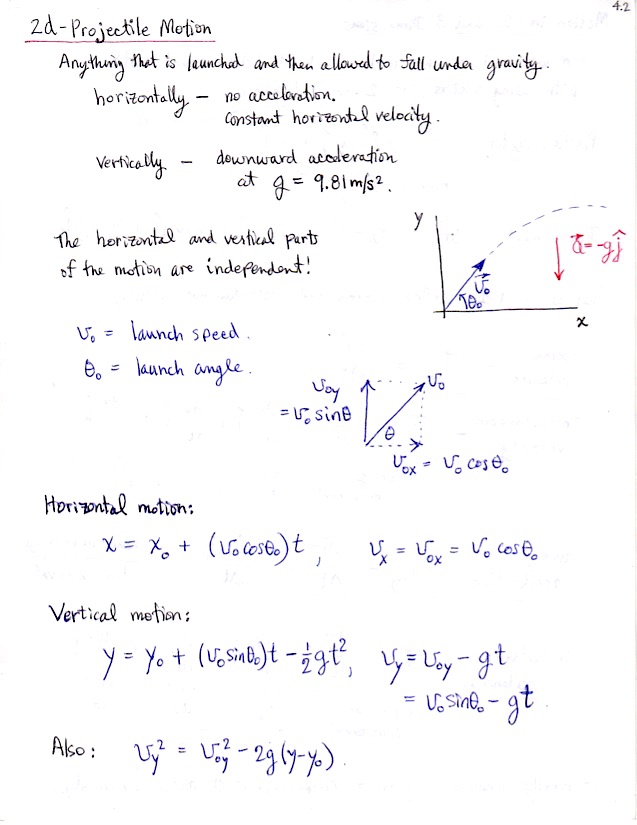 4.2
2d-Projectile Motion
Anything that is launched and then allowed to fall under gravity.
horizontally – no acceleration.
constant horizontal velocity.
vertically – downward acceleration
at g = 9.81m/s².
The horizontal and vertical parts
of the motion are independent!
y
a⃗ = -gĵ
v⃗₀
θ₀
x
v₀ = launch speed.
θ₀ = launch angle.
v₀y
= v₀ sinθ
v₀
θ
v₀x = v₀ cosθ₀
Horizontal motion:
x = x₀ + (v₀cosθ₀)t, vₓ = v₀ₓ = v₀ cosθ₀
Vertical motion:
y = y₀ + (v₀sinθ₀)t - ½gt², vy = v₀y - gt
= v₀sinθ₀ - gt.
Also: vy² = v₀y² - 2g(y-y₀).